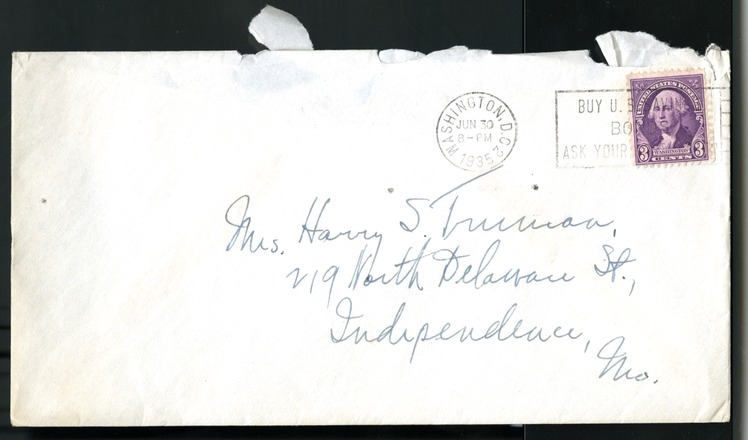 WASHINGTON, D.C. 2
JUN 30
8-PM
1935
BUY U.S.
BO
ASK YOUR
UNITED STATES POSTAGE
3 WASHINGTON 3
CENTS
Mrs. Harry S. Truman,
219 North Delaware St.,
Independence,
Mo.